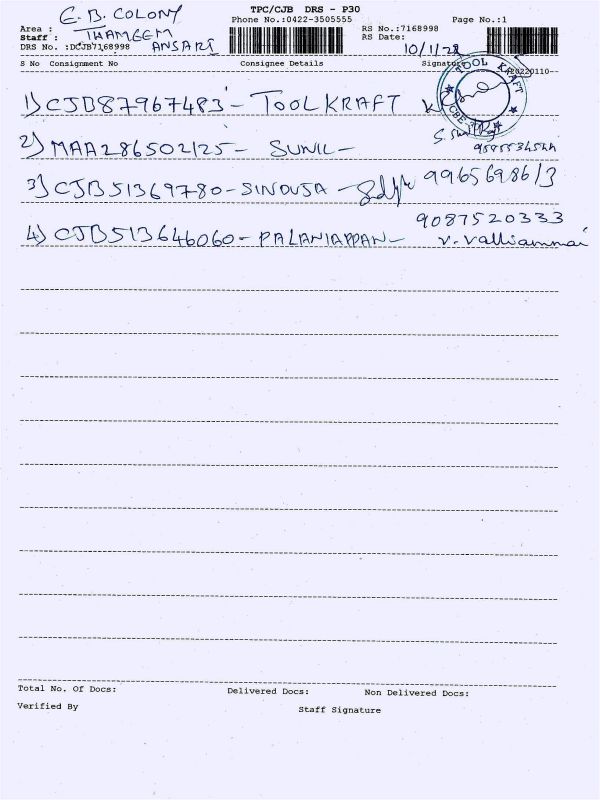 TPC/CJB DRS - P30
E.B. COLONY
Phone No.:0422-3505555
Page No.:1
Area :
Staff : THAMEEM
ANSARI
RS No.:7168998
RS Date:
10/1/22
DRS No. :DCJB7168998
S No Consignment No Consignee Details Signature
20220110
TOOL KRAFT
CBE
1) CJB87967483 - TOOL KRAFT
2) MAA286502125 - SUNIL -
3) CJB51369780 - SINDUJA - 9965698613
9087520333
4) CJB513646060 - PALANIAPPAN - V. Valliammai
Total No. Of Docs: Delivered Docs: Non Delivered Docs:
Verified By Staff Signature